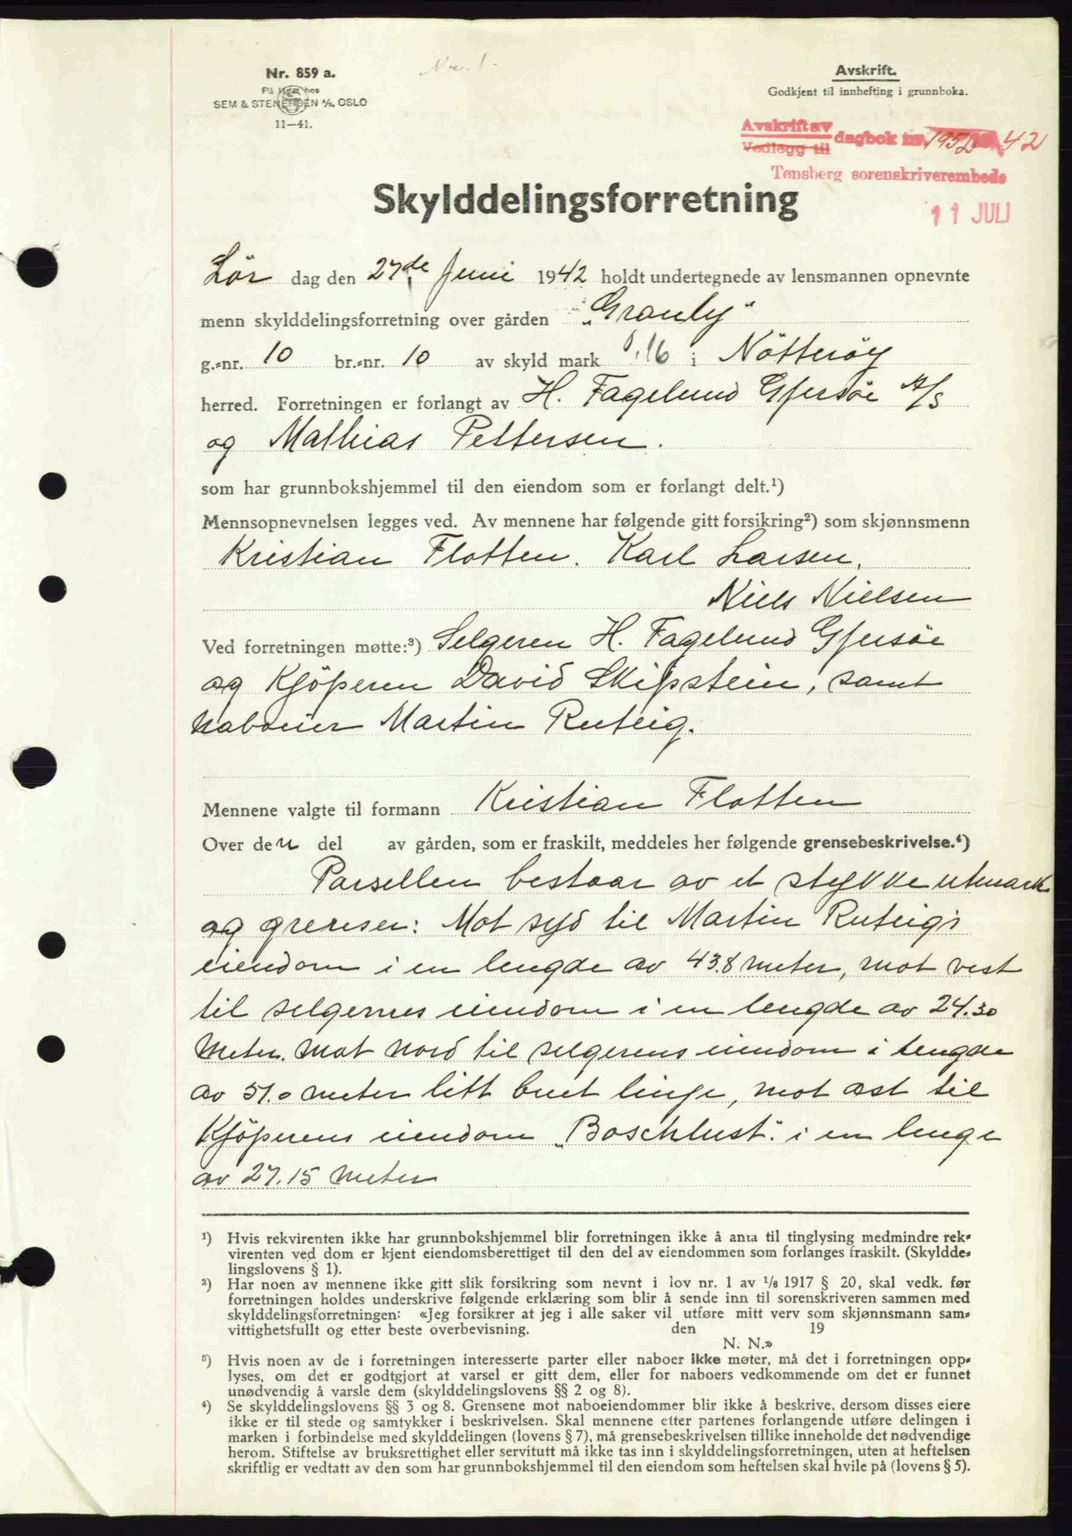 Nr. 859 a.
På lager hos
SEM & STENERSEN A/S, OSLO
11—41.
Avskrift.
Godkjent til innhefting i grunnboka.
Avskrift av
Vedlegg til dagbok nr. 1952 42
Tønsberg sorenskriverembede
11 JULI
Skylddelingsforretning
Lør dag den 27de Juni 1942 holdt undertegnede av lensmannen opnevnte
menn skylddelingsforretning over gården „Granly"
g.-nr. 10 br.-nr. 10 av skyld mark 0,16 i Nötteröy
herred. Forretningen er forlangt av H. Fagelund Gjersöe A/S
og Mathias Pettersen.
som har grunnbokshjemmel til den eiendom som er forlangt delt.¹)
Mennsopnevnelsen legges ved. Av mennene har følgende gitt forsikring²) som skjønnsmenn
Kristian Flotten. Karl Larsen,
Niels Nielsen
Ved forretningen møtte:³) Selgeren H. Fagelund Gjersöe
og Kjöperen David Skipstein, samt
naboner Martin Ruteig.
Mennene valgte til formann Kristian Flotten
Over den del av gården, som er fraskilt, meddeles her følgende grensebeskrivelse.⁴)
Parsellen bestaar av et stykke utmark
og grenser: Mot syd til Martin Ruteig's
eiendom i en lengde av 43.8 meter, mot vest
til selgernes eiendom i en lengde av 24.30
meter. Mot nord til selgerens eiendom i lengde
av 51.0 meter litt buet linje, mot øst til
Kjöperens eiendom „Boschlust". i en lenge
av 27.15 meter
¹) Hvis rekvirenten ikke har grunnbokshjemmel blir forretningen ikke å anta til tinglysing medmindre rek-
virenten ved dom er kjent eiendomsberettiget til den del av eiendommen som forlanges fraskilt. (Skyldde-
lingslovens § 1).
²) Har noen av mennene ikke gitt slik forsikring som nevnt i lov nr. 1 av 1/6 1917 § 20, skal vedk. før
forretningen holdes underskrive følgende erklæring som blir å sende inn til sorenskriveren sammen med
skylddelingsforretningen: «Jeg forsikrer at jeg i alle saker vil utføre mitt verv som skjønnsmann sam-
vittighetsfullt og etter beste overbevisning. den 19
N. N.»
³) Hvis noen av de i forretningen interesserte parter eller naboer ikke møter, må det i forretningen opp-
lyses, om det er godtgjort at varsel er gitt dem, eller for naboers vedkommende om det er funnet
unødvendig å varsle dem (skylddelingslovens §§ 2 og 8).
⁴) Se skylddelingslovens §§ 3 og 8. Grensene mot naboeiendommer blir ikke å beskrive, dersom disses eiere
ikke er til stede og samtykker i beskrivelsen. Skal mennene etter partenes forlangende utføre delingen i
marken i forbindelse med skylddelingen (lovens § 7), må grensebeskrivelsen tillike inneholde det nødvendige
herom. Stiftelse av bruksrettighet eller servitutt må ikke tas inn i skylddelingsforretningen, uten at heftelsen
skriftlig er vedtatt av den som har grunnbokshjemmel til den eiendom som heftelsen skal hvile på (lovens § 5).